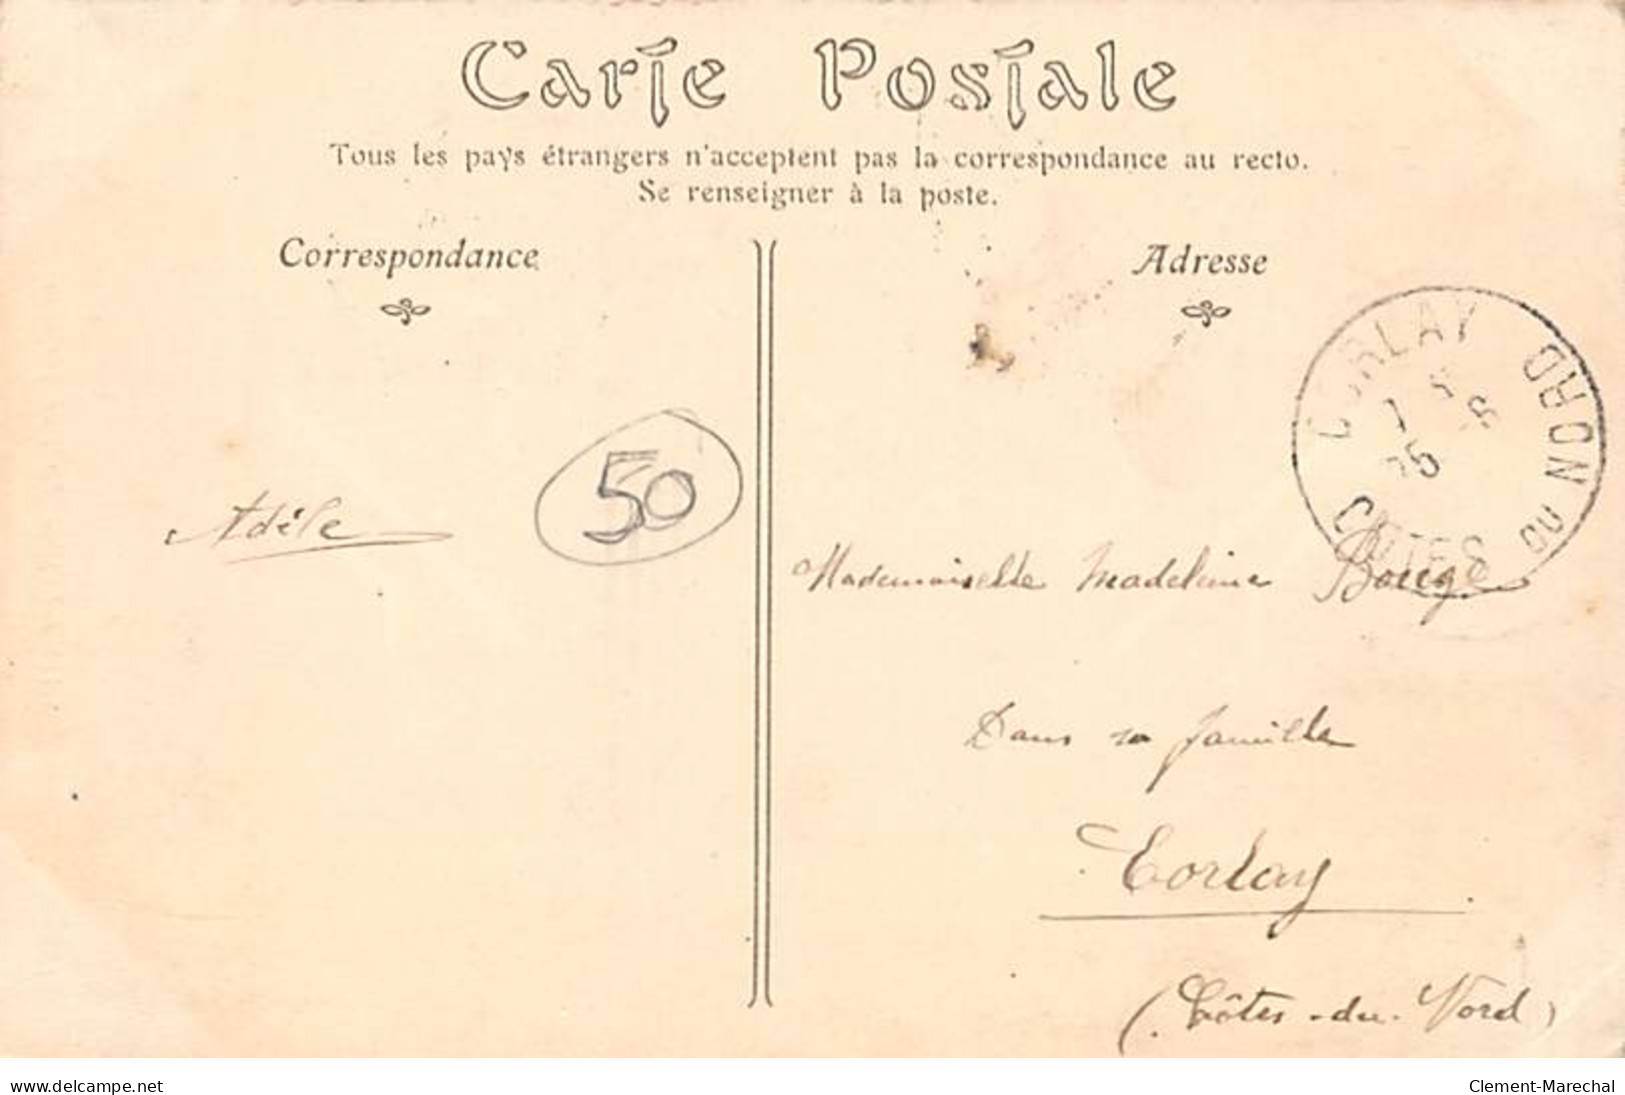 Carte Postale
Tous les pays étrangers n'acceptent pas la correspondance au recto.
Se renseigner à la poste.
Correspondance
Adèle
50
Adresse
CORLAY
COTES DU NORD
Mademoiselle Madeleine
Dans sa famille
Corlay
(Côtes-du-Nord)
www.delcampe.net
Clement-Marechal